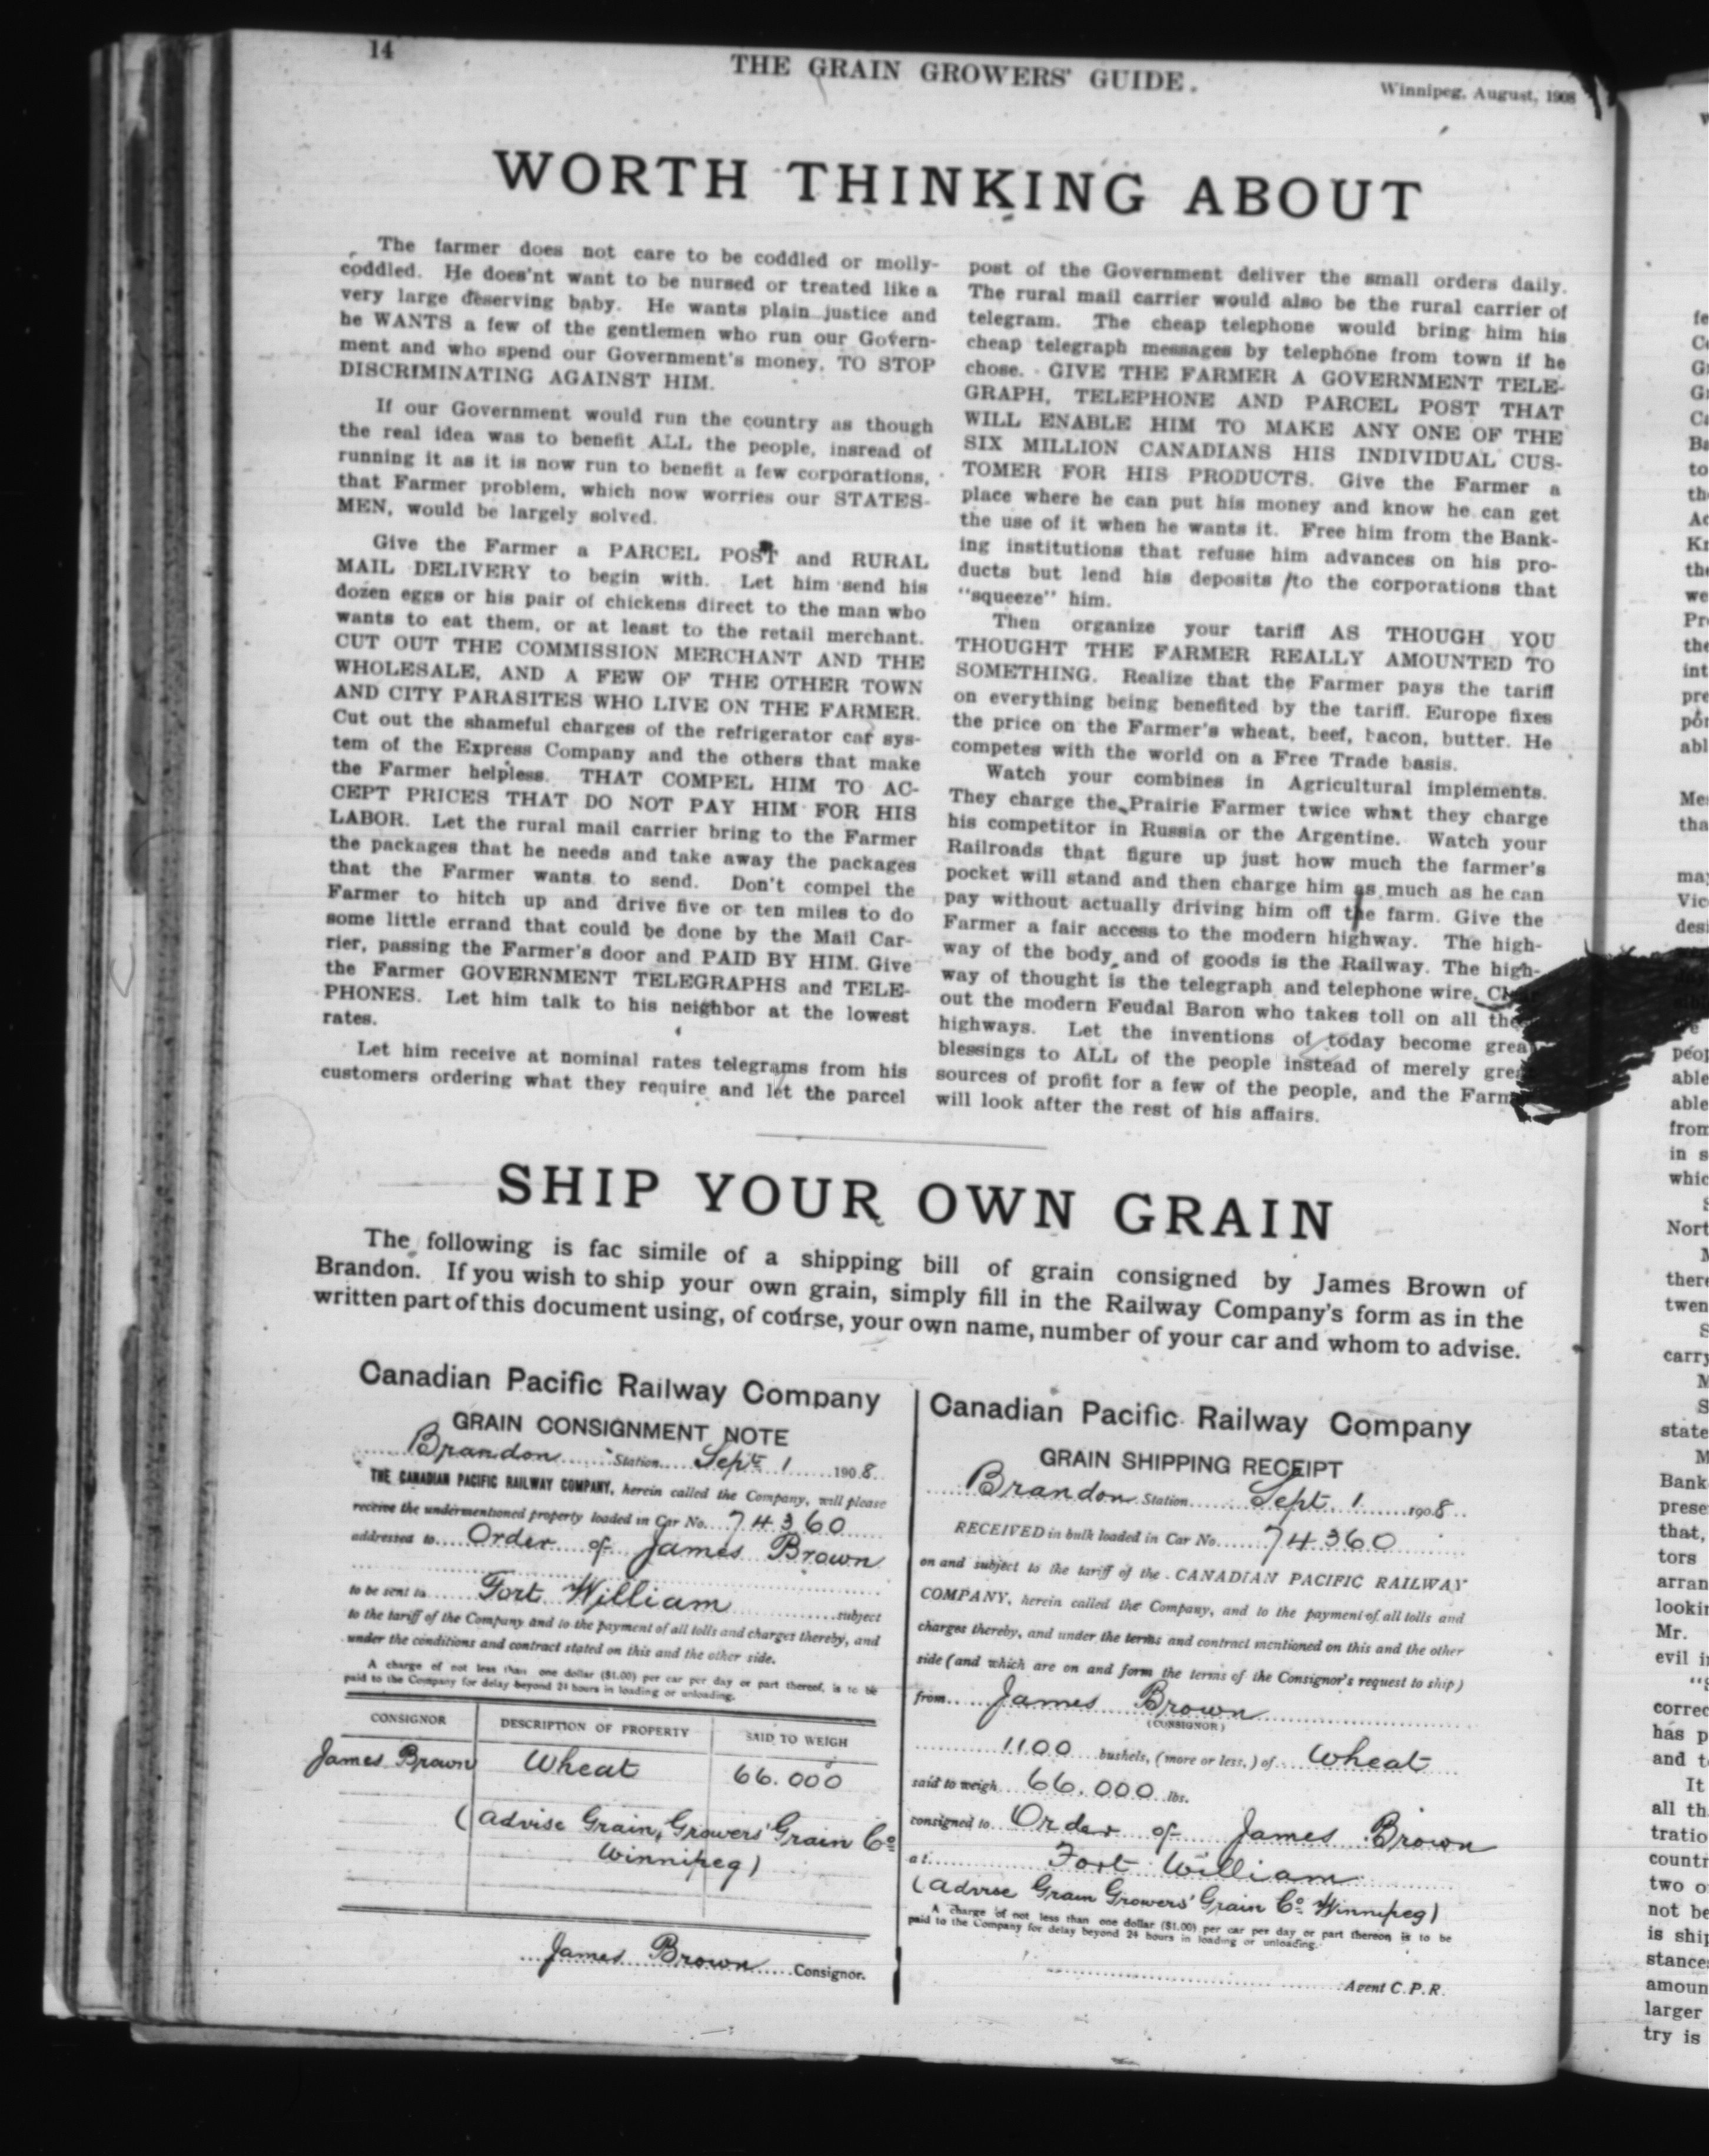 14
THE GRAIN GROWERS' GUIDE.
Winnipeg, August, 1908
WORTH THINKING ABOUT
The farmer does not care to be coddled or molly-
coddled. He does'nt want to be nursed or treated like a
very large deserving baby. He wants plain justice and
he WANTS a few of the gentlemen who run our Govern-
ment and who spend our Government's money, TO STOP
DISCRIMINATING AGAINST HIM.
If our Government would run the country as though
the real idea was to benefit ALL the people, insread of
running it as it is now run to benefit a few corporations,
that Farmer problem, which now worries our STATES-
MEN, would be largely solved.
Give the Farmer a PARCEL POST and RURAL
MAIL DELIVERY to begin with. Let him send his
dozen eggs or his pair of chickens direct to the man who
wants to eat them, or at least to the retail merchant.
CUT OUT THE COMMISSION MERCHANT AND THE
WHOLESALE, AND A FEW OF THE OTHER TOWN
AND CITY PARASITES WHO LIVE ON THE FARMER.
Cut out the shameful charges of the refrigerator car sys-
tem of the Express Company and the others that make
the Farmer helpless. THAT COMPEL HIM TO AC-
CEPT PRICES THAT DO NOT PAY HIM FOR HIS
LABOR. Let the rural mail carrier bring to the Farmer
the packages that he needs and take away the packages
that the Farmer wants to send. Don't compel the
Farmer to hitch up and drive five or ten miles to do
some little errand that could be done by the Mail Car-
rier, passing the Farmer's door and PAID BY HIM. Give
the Farmer GOVERNMENT TELEGRAPHS and TELE-
PHONES. Let him talk to his neighbor at the lowest
rates.
Let him receive at nominal rates telegrams from his
customers ordering what they require and let the parcel
post of the Government deliver the small orders daily.
The rural mail carrier would also be the rural carrier of
telegram. The cheap telephone would bring him his
cheap telegraph messages by telephone from town if he
chose. GIVE THE FARMER A GOVERNMENT TELE-
GRAPH, TELEPHONE AND PARCEL POST THAT
WILL ENABLE HIM TO MAKE ANY ONE OF THE
SIX MILLION CANADIANS HIS INDIVIDUAL CUS-
TOMER FOR HIS PRODUCTS. Give the Farmer a
place where he can put his money and know he can get
the use of it when he wants it. Free him from the Bank-
ing institutions that refuse him advances on his pro-
ducts but lend his deposits to the corporations that
"squeeze" him.
Then organize your tariff AS THOUGH YOU
THOUGHT THE FARMER REALLY AMOUNTED TO
SOMETHING. Realize that the Farmer pays the tariff
on everything being benefited by the tariff. Europe fixes
the price on the Farmer's wheat, beef, bacon, butter. He
competes with the world on a Free Trade basis.
Watch your combines in Agricultural implements.
They charge the Prairie Farmer twice what they charge
his competitor in Russia or the Argentine. Watch your
Railroads that figure up just how much the farmer's
pocket will stand and then charge him as much as he can
pay without actually driving him off the farm. Give the
Farmer a fair access to the modern highway. The high-
way of the body and of goods is the Railway. The high-
way of thought is the telegraph and telephone wire.
out the modern Feudal Baron who takes toll on all
highways. Let the inventions of today become
blessings to ALL of the people instead of merely
sources of profit for a few of the people, and the
will look after the rest of his affairs.
SHIP YOUR OWN GRAIN
The following is fac simile of a shipping bill of grain consigned by James Brown of
Brandon. If you wish to ship your own grain, simply fill in the Railway Company's form as in the
written part of this document using, of course, your own name, number of your car and whom to advise.
Canadian Pacific Railway Company
GRAIN CONSIGNMENT NOTE
Brandon Station Sept 1 1908.
THE CANADIAN PACIFIC RAILWAY COMPANY, herein called the Company, will please
receive the undermentioned property loaded in Car No. 74360
addressed to Order of James Brown
to be sent to Fort William subject
to the tariff of the Company and to the payment of all tolls and charges thereby, and
under the conditions and contract stated on this and the other side.
A charge of not less than one dollar ($1.00) per car per day or part thereof, is to be
paid to the Company for delay beyond 24 hours in loading or unloading.
CONSIGNOR DESCRIPTION OF PROPERTY SAID TO WEIGH
James Brown Wheat 66.000
(Advise Grain Growers' Grain Co
Winnipeg)
James Brown Consignor.
Canadian Pacific Railway Company
GRAIN SHIPPING RECEIPT
Brandon Station Sept. 1 1908
RECEIVED in bulk loaded in Car No. 74360
on and subject to the tariff of the CANADIAN PACIFIC RAILWAY
COMPANY, herein called the Company, and to the payment of all tolls and
charges thereby, and under the terms and contract mentioned on this and the other
side (and which are on and form the terms of the Consignor's request to ship)
from James Brown
(CONSIGNOR)
1100 bushels, (more or less,) of Wheat
said to weigh 66.000 lbs.
consigned to Order of James Brown
at Fort William
(Advise Grain Growers' Grain Co Winnipeg)
A charge of not less than one dollar ($1.00) per car per day or part thereon is to be
paid to the Company for delay beyond 24 hours in loading or unloading.
Agent C.P.R.